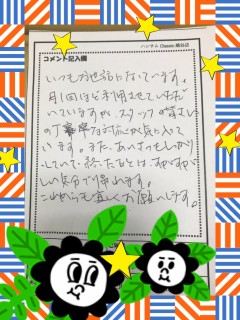 ハンサム Classic 熊谷店
コメント記入欄
いつもお世話になっています。
月1回ほど利用させていただ
いていますが、スタッフの皆さん
の丁寧な対応が気に入って
います。また、あいさつもしっかり
していて、終わったあとは、すがすが
しい気分で帰れます。
これからも宜しくお願いします。